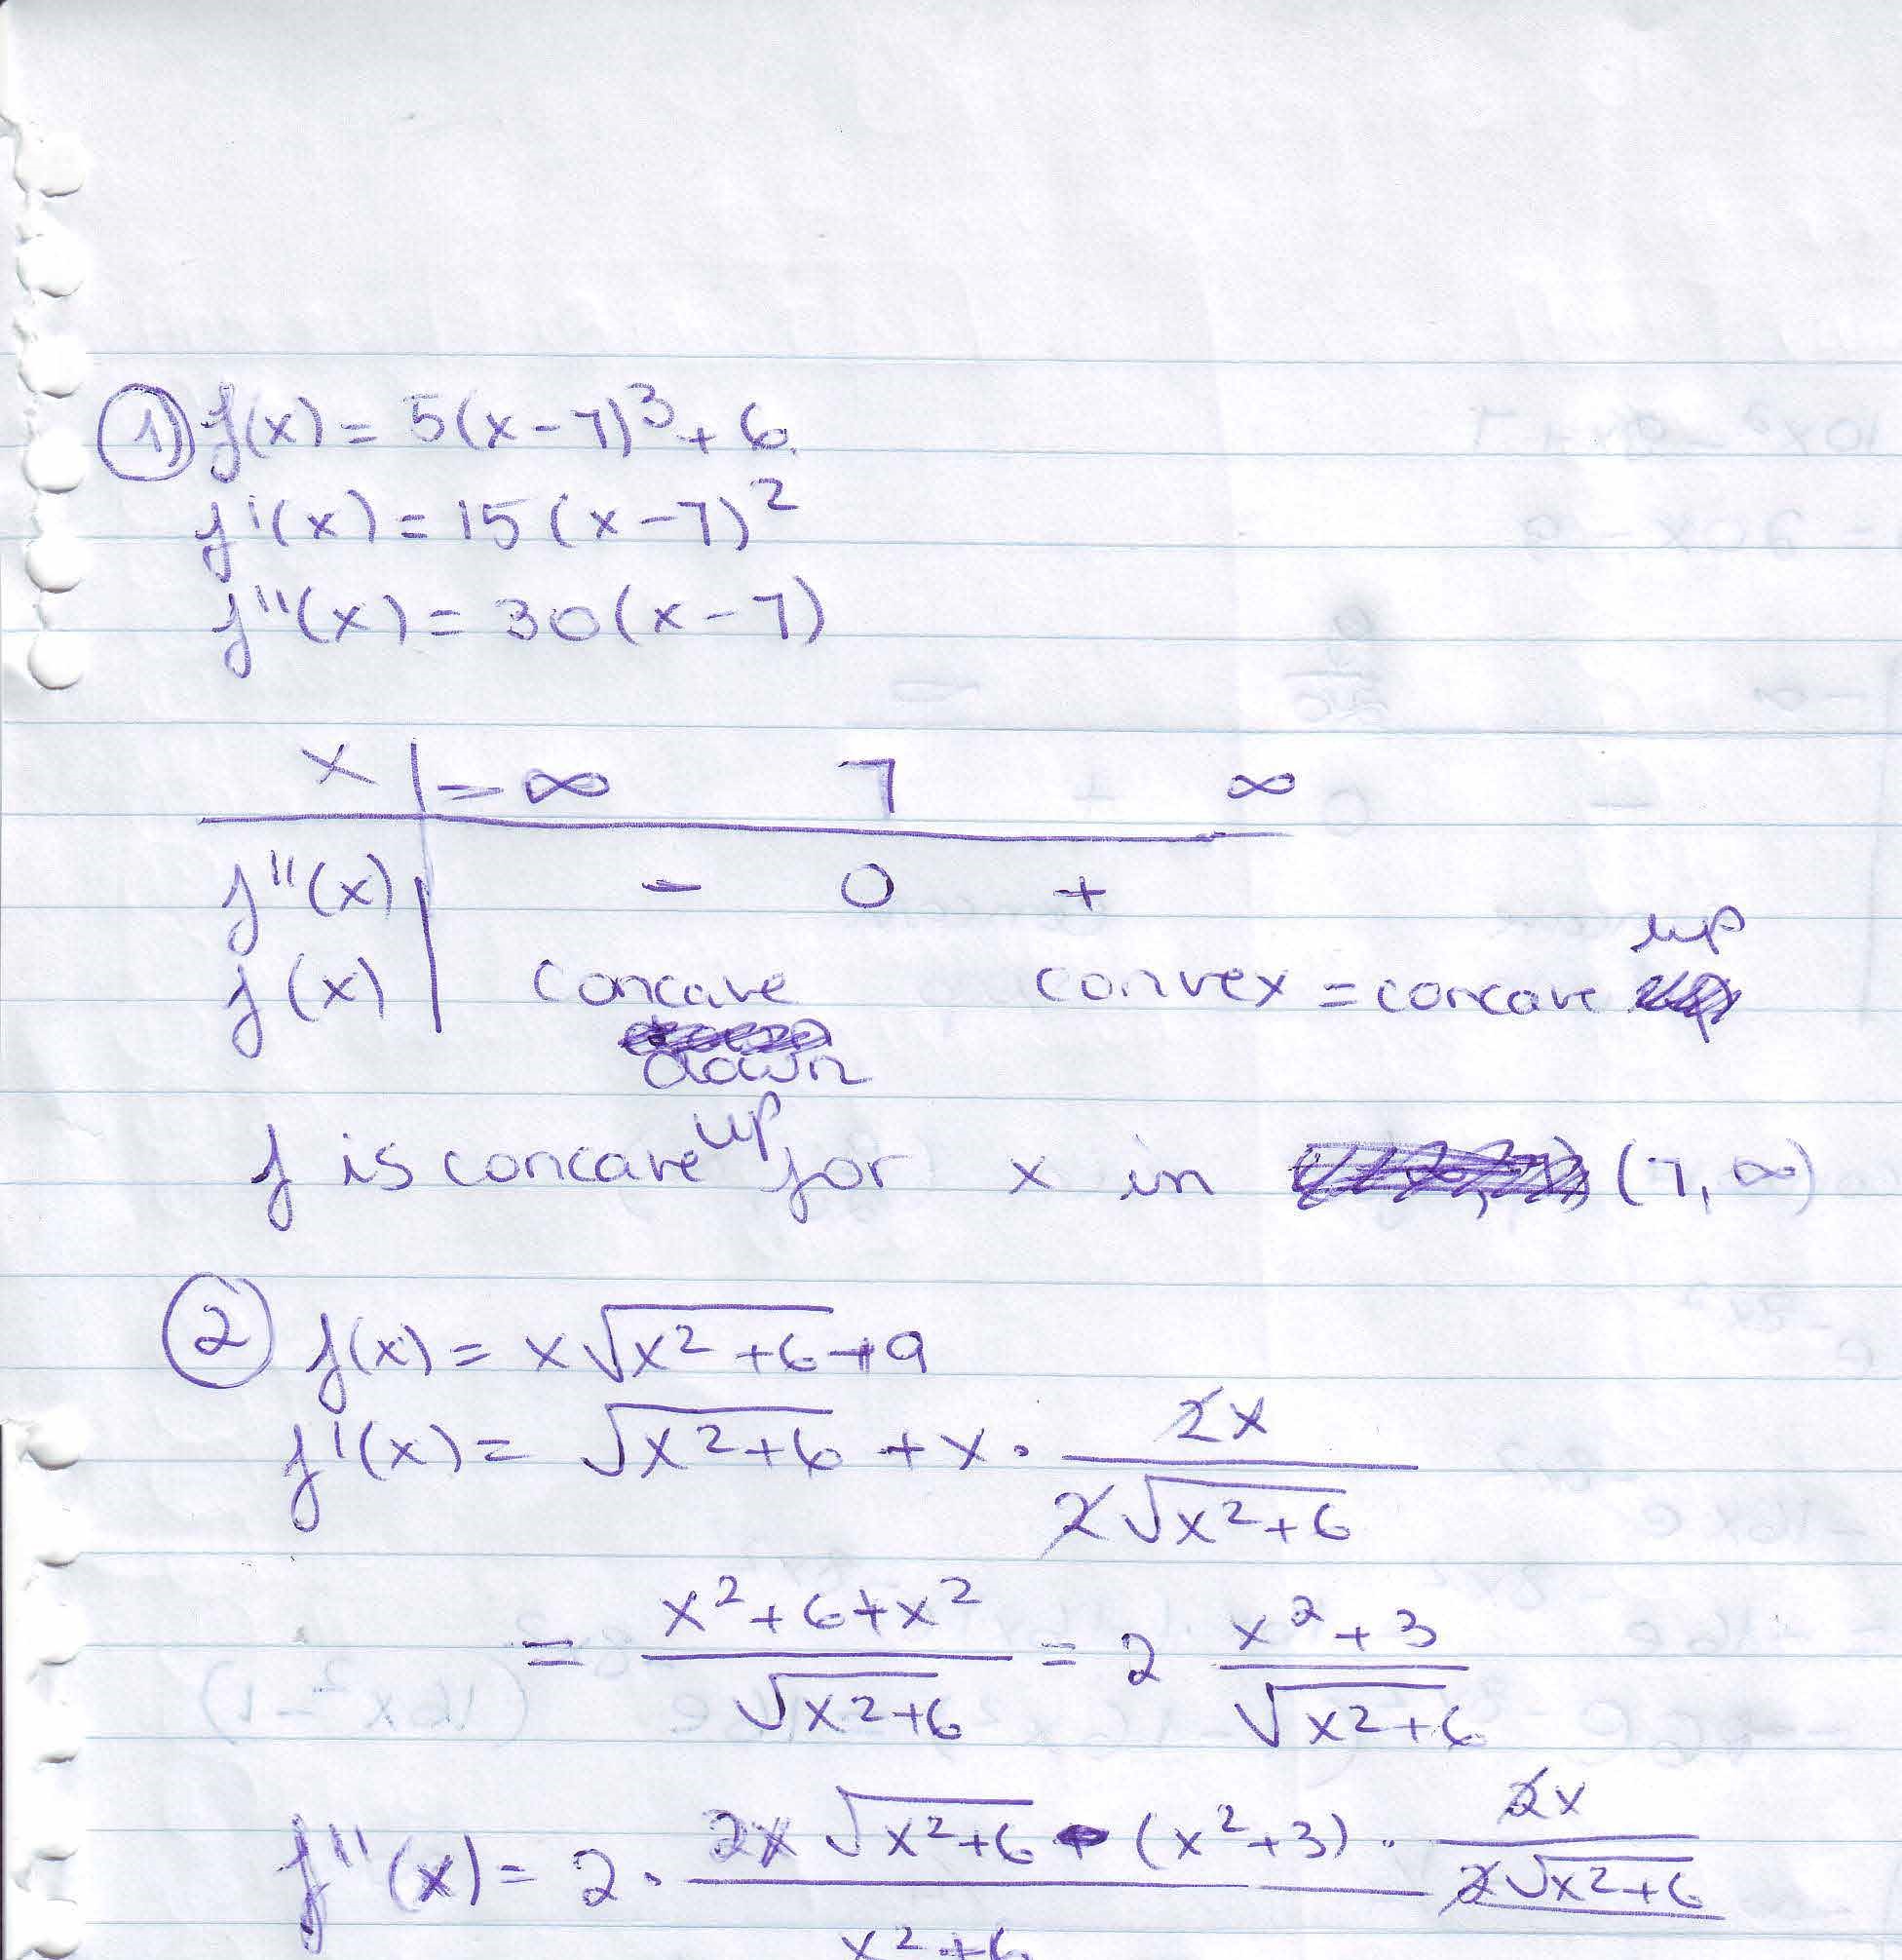 1) f(x) = 5(x-7)³ + 6.
f'(x) = 15(x-7)²
f''(x) = 30(x-7)
x | -∞ 7 ∞
f''(x) | - 0 +
f(x) | concave down convex = concave up
f is concave up for x in (7, ∞)
2 f(x) = x√(x²+6) + 9
f'(x) = √(x²+6) + x · 2x / 2√(x²+6)
= (x²+6+x²) / √(x²+6) = 2 (x²+3) / √(x²+6)
f''(x) = 2 · (2x√(x²+6) - (x²+3) · 2x / 2√(x²+6)) / (x²+6)